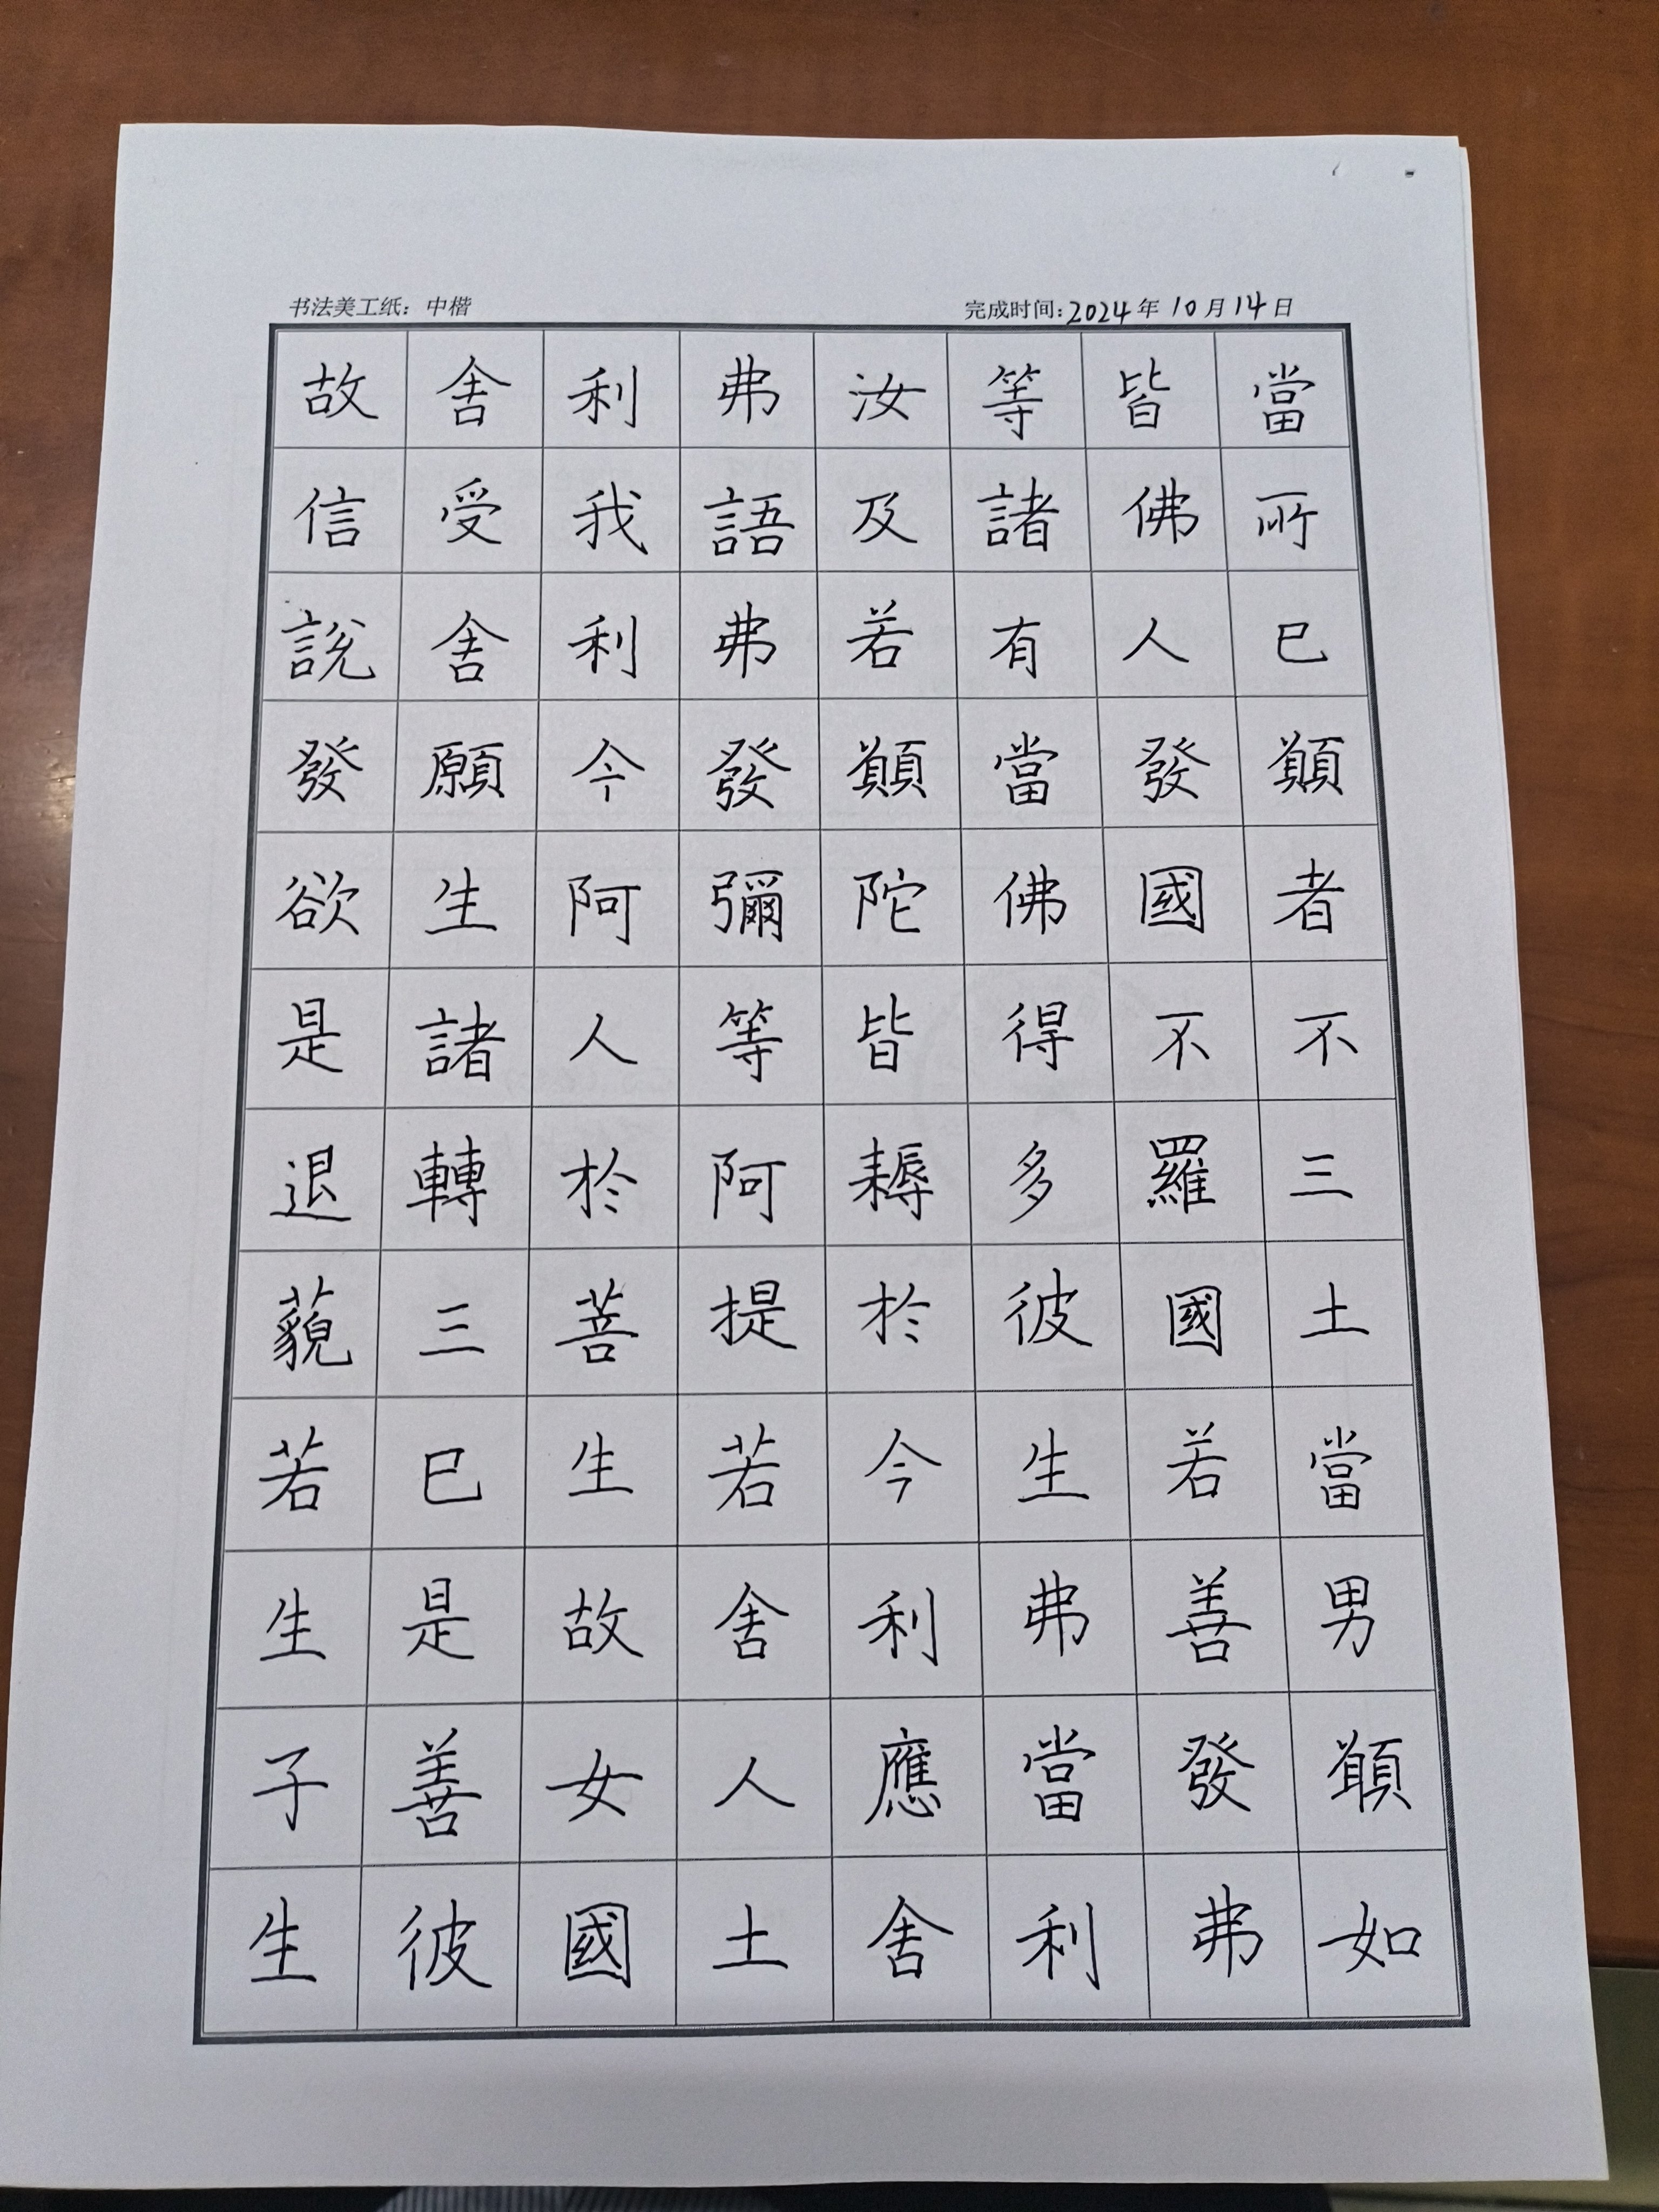 书法美工纸：中楷
完成时间：2024年10月14日
故舍利弗汝等皆當
信受我語及諸佛所
說舍利弗若有人已
發願今發願當發願
欲生阿彌陀佛國者
是諸人等皆得不不
退轉於阿耨多羅三
藐三菩提於彼國土
若已生若今生若當
生是故舍利弗善男
子善女人應當發願
生彼國土舍利弗如